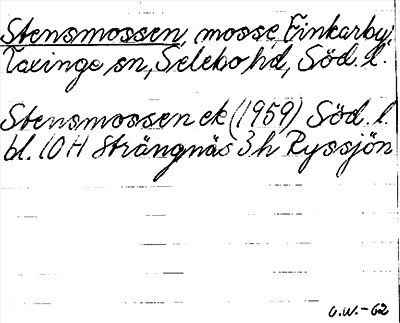 Stensmossen, mosse, Finkarby,
Taxinge sn, Selebo hd, Söd. l.
Stensmossen ek (1959) Söd. l
bl. 10 H Strängnäs 3 h Ryssjön
O.W.-62